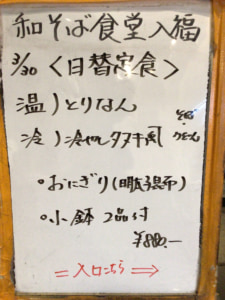 和そば食堂入福
3/30 <日替定食>
温)とりなん
そば・うどん
冷)冷やしタヌキ風
。おにぎり(明太昆布)
。小鉢 2品付
¥880ー
=入口こちら⇒